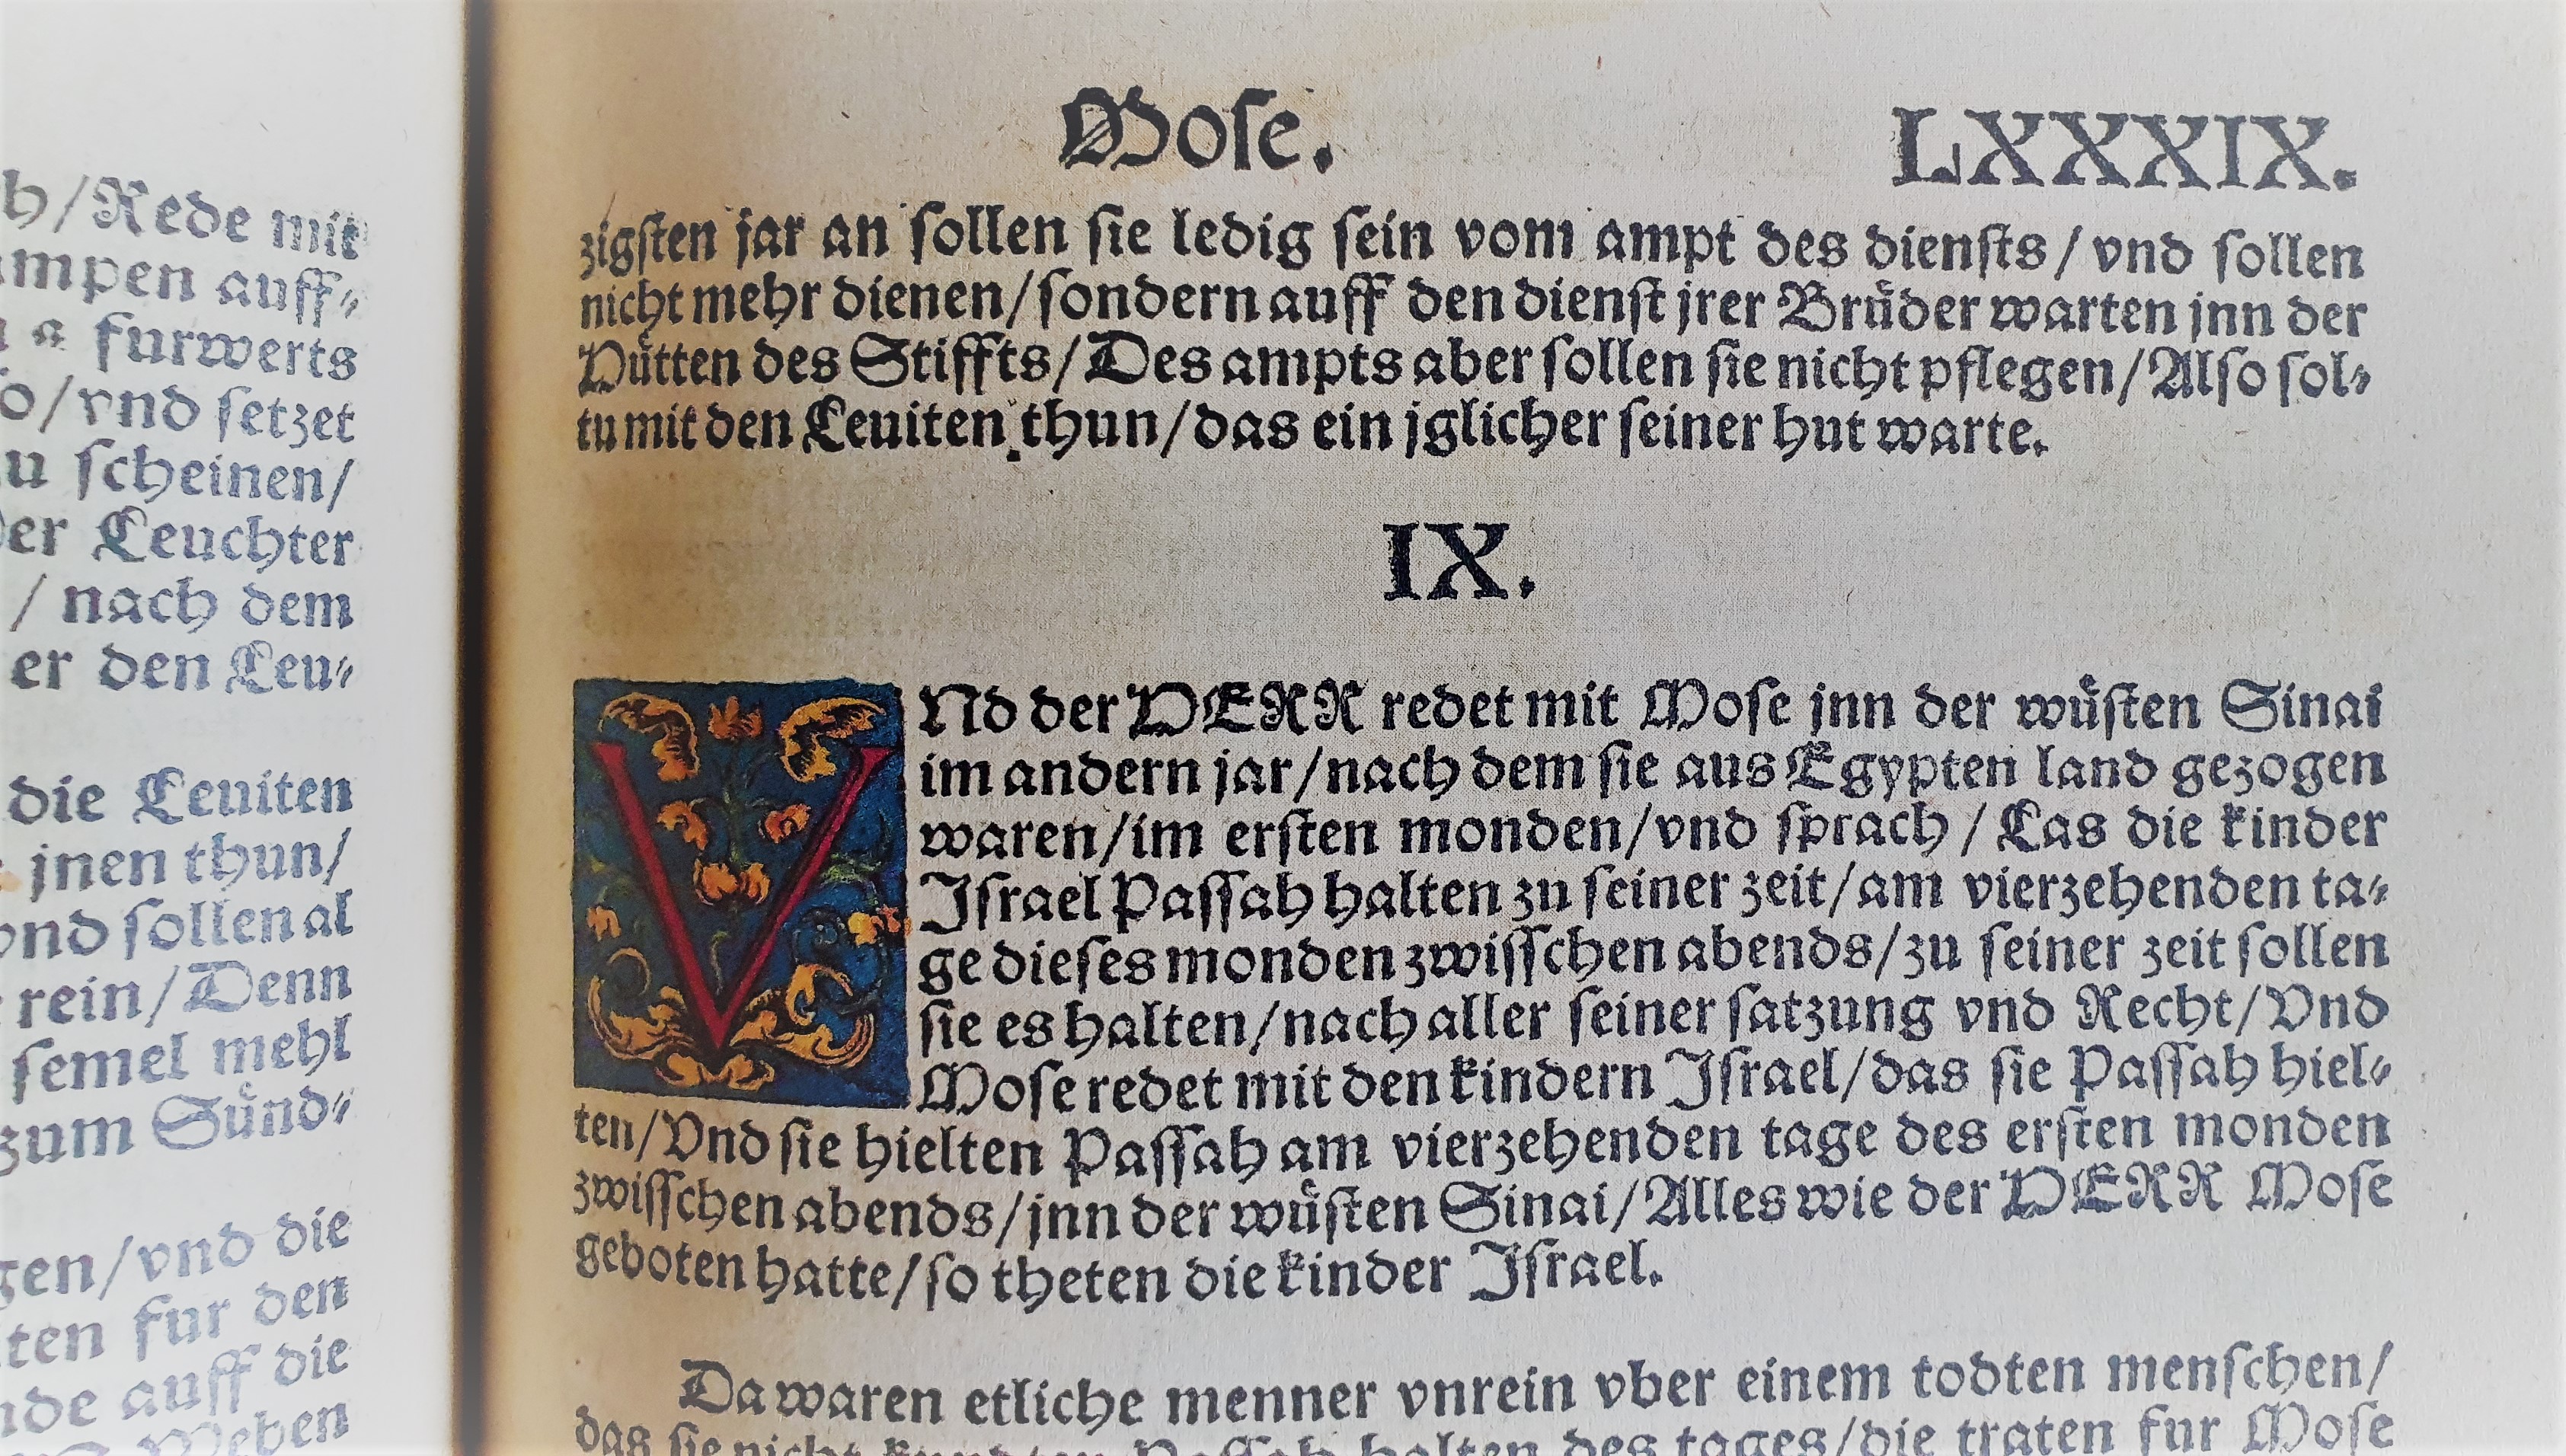 h/Rede mit
mpen auff⸗
furwerts
o/vnd setzet
u scheinen/
er Leuchter
/ nach dem
er den Leu⸗
die Leuiten
jnen thun/
vnd sollen al
rein/Denn
semel mehl
zum Sůnd⸗
gen/vnd die
ten fur den
de auff die
Weben
Mose.
LXXXIX.
zigsten jar an sollen sie ledig sein vom ampt des diensts/vnd sollen
nicht mehr dienen/sondern auff den dienst jrer Brůder warten jnn der
Hůtten des Stiffts/Des ampts aber sollen sie nicht pflegen/Also sol⸗
tu mit den Leuiten thun/das ein jglicher seiner hut warte.
IX.
VNd der HERR redet mit Mose jnn der wůsten Sinai
im andern jar/nach dem sie aus Egypten land gezogen
waren/im ersten monden/vnd sprach/Las die kinder
Israel Passah halten zu seiner zeit/am vierzehenden ta⸗
ge dieses monden zwisschen abends/zu seiner zeit sollen
sie es halten/nach aller seiner satzung vnd Recht/Vnd
Mose redet mit den kindern Israel/das sie Passah hiel⸗
ten/Vnd sie hielten Passah am vierzehenden tage des ersten monden
zwisschen abends/jnn der wůsten Sinai/Alles wie der HERR Mose
geboten hatte/so theten die kinder Israel.
Da waren etliche menner vnrein vber einem todten menschen/
das sie nicht kundten Passah halten des tages/die traten fur Mose